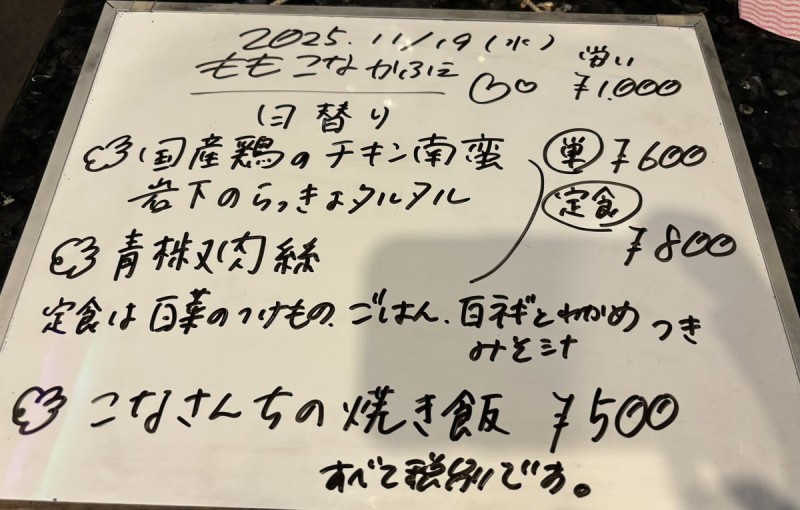 2025.11/19(水)
ももこなかふぇ
¥1,000
日替り
国産鶏のチキン南蛮 単 ¥600
岩下のらっきょタルタル 定食
¥800
青椒肉絲
定食は白菜のつけもの、ごはん、白ネギとわかめ つき
みそ汁
こなさんちの焼き飯 ¥500
すべて税別です。